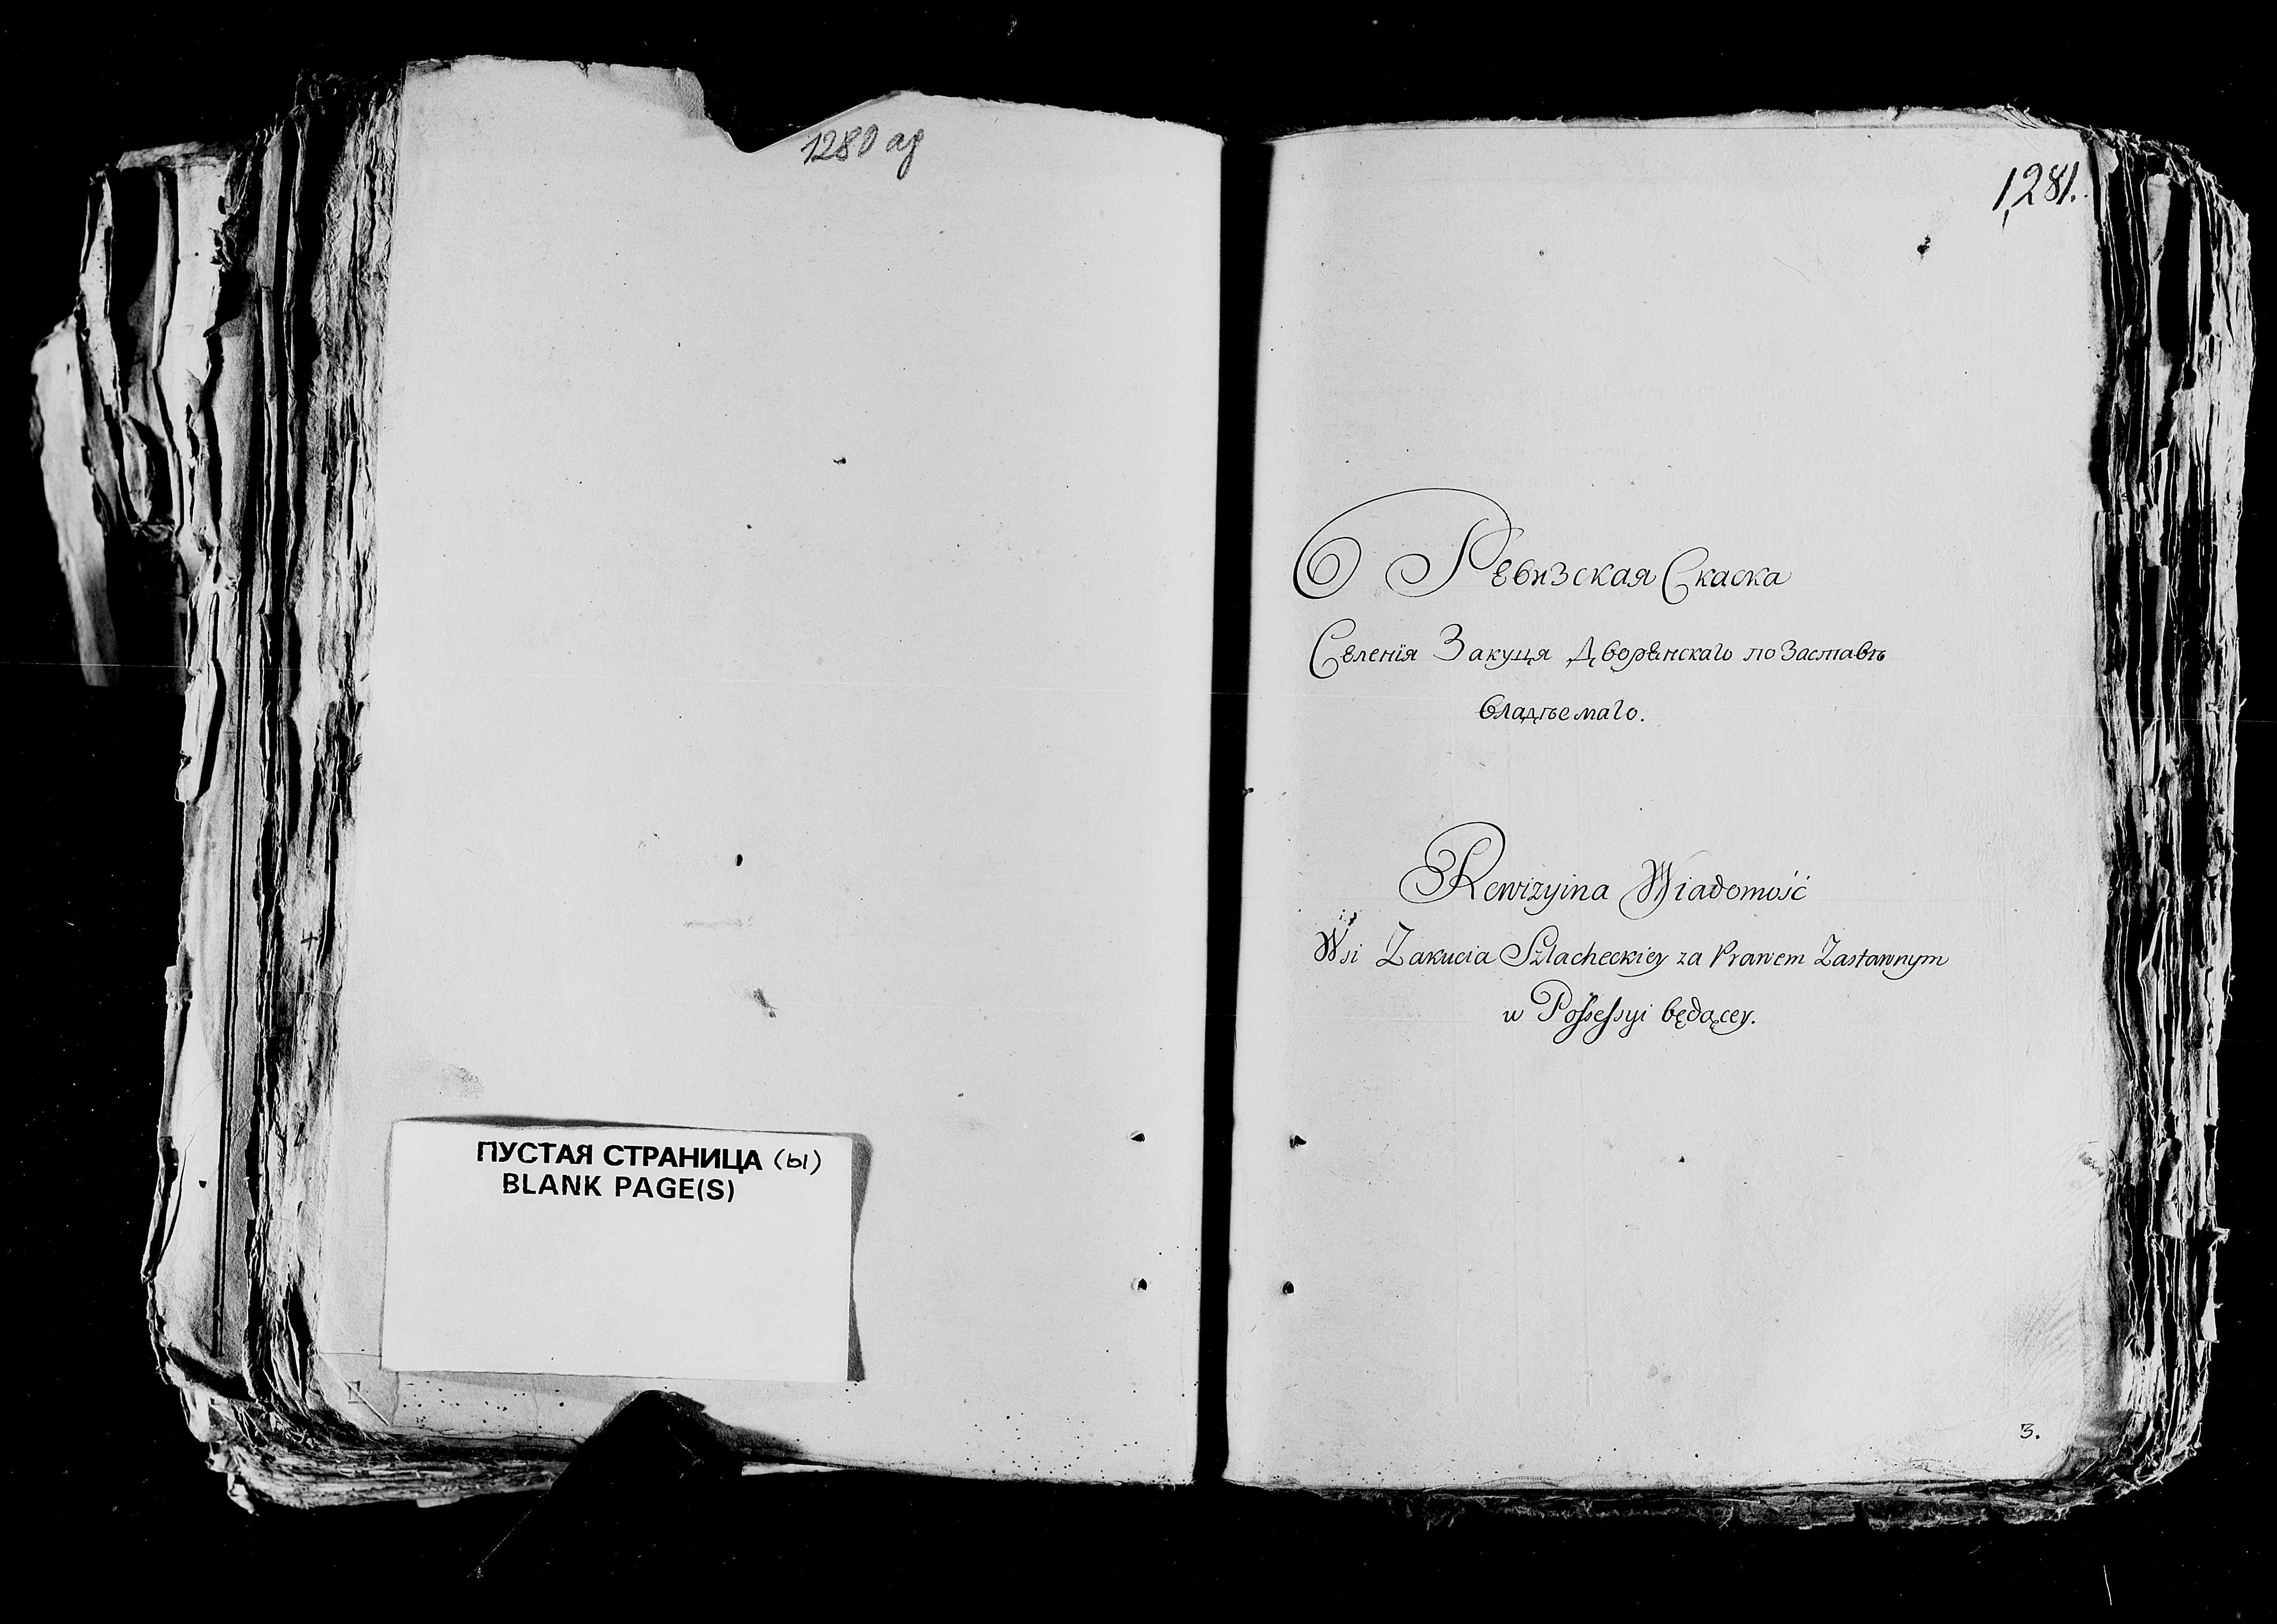 1280 ag
ПУСТАЯ СТРАНИЦА (ы)
BLANK PAGE(S)
1281.
Ревизская Скаска
Селенія Закуця Дворянскаго по Заставѣ
владѣемаго.
Rewizyina Wiadomość
Wsi Zakucia Szlacheckiey za Prawem Zastawnym
w Possessyi będącey.
3.